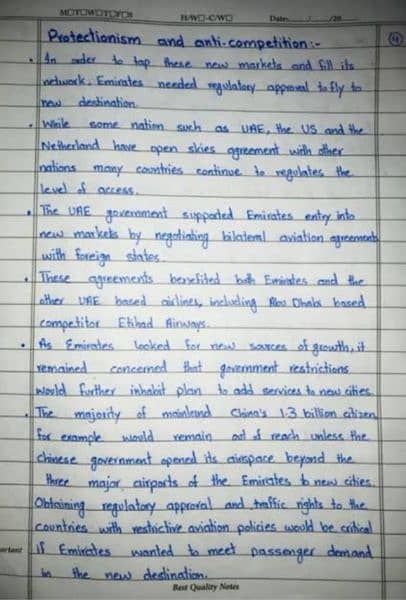 M☐T☐W☐T☐F☐S H/W☐-C/W☐ Date: / /20
Protectionism and anti-competition:- (4)
• In order to tap these new markets and fill its
network, Emirates needed regulatory approval to fly to
new destination.
• While some nation such as UAE, the US and the
Netherland have open skies agreement with other
nations many countries continue to regulates the
level of access.
• The UAE government supported Emirates entry into
new markets by negotiating bilateral aviation agreements
with foreign states.
• These agreements benefited both Emirates and the
other UAE based airlines, including Abu Dhabi based
competitor Etihad Airways.
• As Emirates looked for new sources of growth, it
remained concerned that government restrictions
would further inhabit plan to add services to new cities.
• The majority of mainland China's 1.3 billion citizen
for example would remain out of reach unless the
chinese government opened its airspace beyond the
three major airports of the Emirates to new cities.
Obtaining regulatory approval and traffic rights to the
countries with restrictive aviation policies would be critical
if Emirates wanted to meet passenger demand
in the new destination.
Best Quality Notes